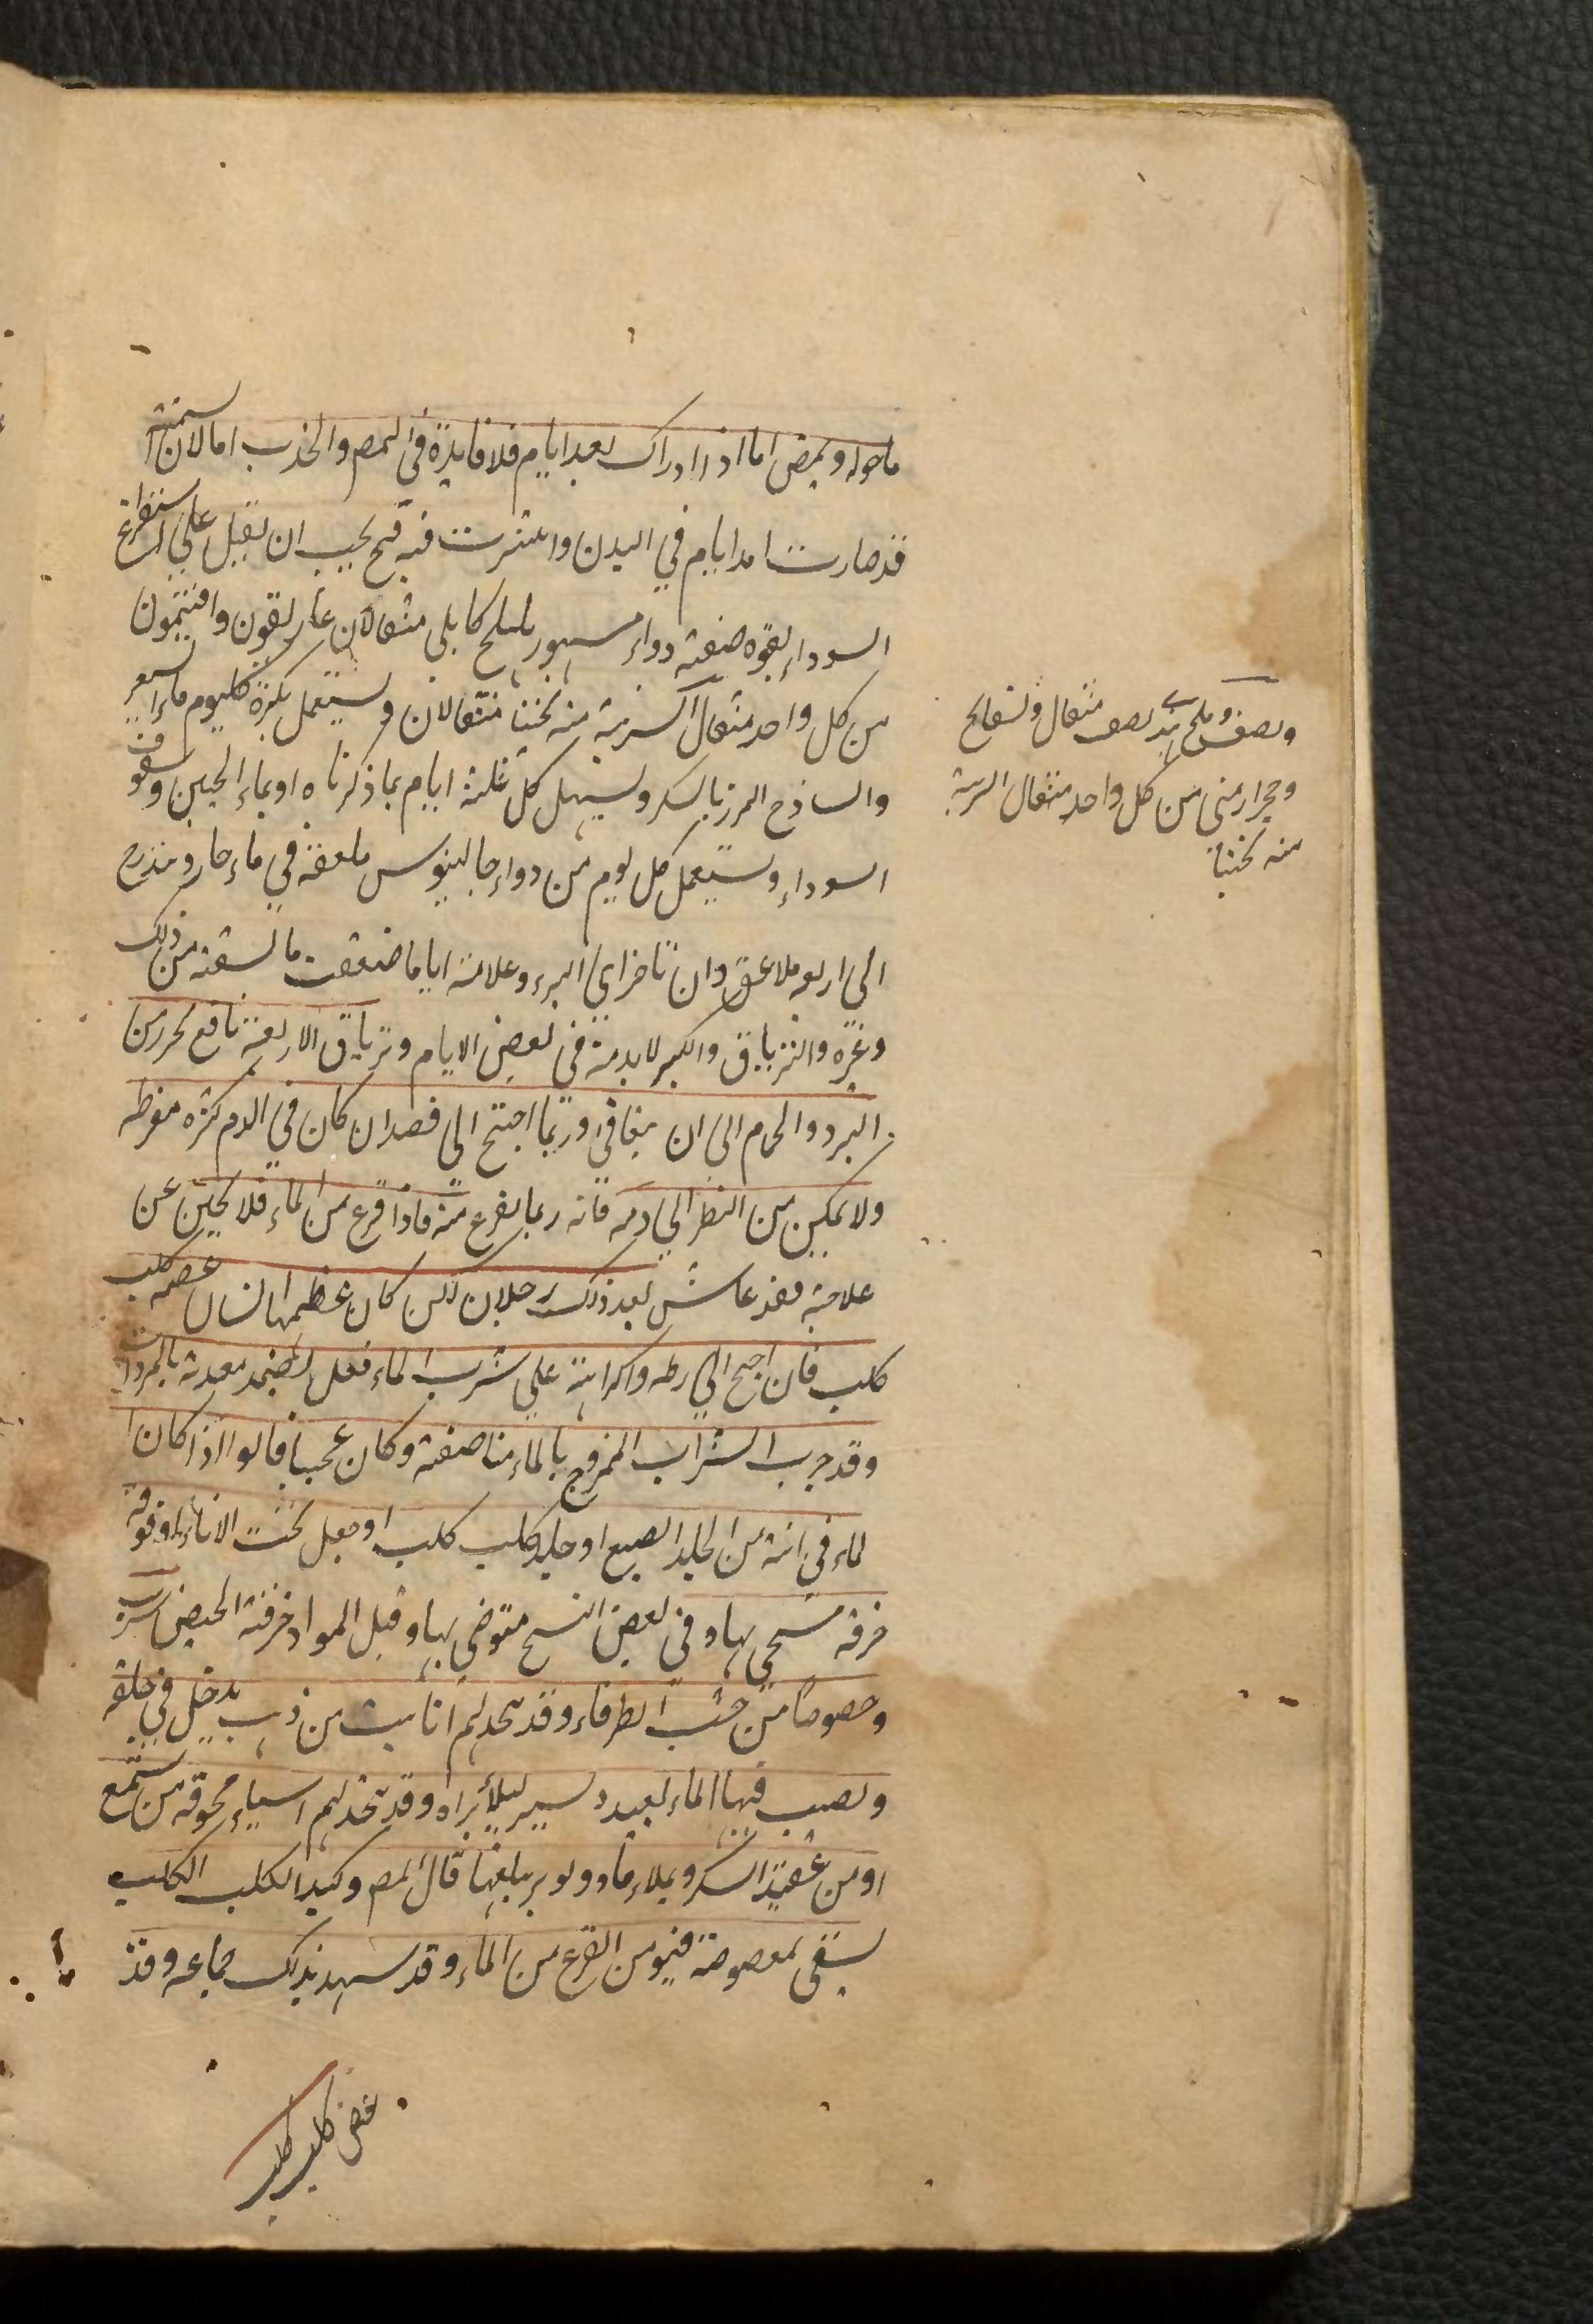 ماحوله ويمص اما اذا ادراك بعد ايام فلا فايدة فى المص والجذب اما لان السمية
قد صارت امد ايام في البدن وانتشرت فيه فح يجب ان يقبل علي استفراغ
السوداء بقوة صفة دواء مسهور هليلج كابلي مثقالان غاريقون وافتيمون
من كل واحد مثقال الشربة منه نحبنا مثقالان ويستعمل بكرة كليوم ماء الشعير
والساذج المرزبا لسكر ويسهل كل ثلثة ايام بما ذكرناه او بماء الجبن وسفوف
السوداء ويستعمل كل يوم من دواء جالينوس ملعقة في ماء حار ويتدرج
الى اربع ملاعق وان تاخر اي البرء وعلامة اياما ضعفت ما سقيته من ذلك
وغيره والترياق والكبير لابد منه في بعض الايام وترياق الاربعة نافع يحرز من
البرد والحمام الى ان يعافى وربما احتيج الى فصد ان كان في الدم كثرة مفرطه
ولا يمكن من النظر الي دمه فانه ربما يفزع منه فاذا فزع من الماء فلا يحين عن
علاجه فقد عاش بعد ذلك رجلان لكن كان عظمهما انسان عضه كلب
كلب فان احتيج الي ربطه واكراهه علي شرب الماء فعل ليضمد معدته بالمبردات
وقد جرب الشراب الممزوج بالماء مناصفة وكان عجيبا قالوا اذا كان ا
لماء في انية من الجلد الضبع او جلد كلب كلب او جعل تحت الاناء او فوقه
خرقه مستنجي بها وفي بعض النسخ متوضى بها وقيل المواد خرقة الحيض شرب
وخصوصا من خشب الطرفاء وقد يتخذ لهم انابيب من ذهب يدخل في حلقه
ويصب فيها الماء بعيد ويسير لئلا يراه وقد يتخذ لهم اشياء مجوفة من شمع
او من عقيد السكر ويملاء ماء ويومر ببلعها قال المص وكبد الكلب الكلب
يسقى لمعضوضه فيؤمن الفزع من الماء وقد شهد بذلك جماعه وقد
عض كلب كلب
ونصف وملح هندى نصف مثقال وبسفايج
وحجر ارمنى من كل واحد مثقال الشربة
منه نحبنا